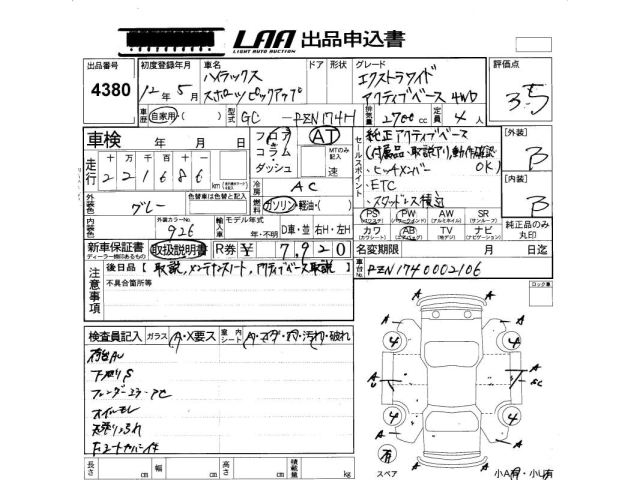 LAA 出品申込書
LIGHT AUTO AUCTION
出品番号 4380
初度登録年月 12年5月
車名 ハイラックス スポーツピックアップ
ドア 形状
グレード エクストラワイド アクティブベース 4WD
評価点 3.5
車歴 自家用・( )
型式 GC-RZN174H
排気量 2700cc
定員 4人
車検 年 月 日
フロア コラム ダッシュ
AT
MTのみ記入 速
セールスポイント
純正アクティブベース
(付属品・取説アリ、動作確認OK)
・ヒッチメンバー
・ETC
・スタッドレス積込
[外装] B
[内装] B
走行 十 万 千 百 十 km
2 2 1 6 8 6
冷房 AC
外装色 グレー
色替車は色替と記入
燃料 ガソリン・軽油・( )
PS PW AW SR
(パワステ) (パワーウインド) (アルミホイル) (サンルーフ)
カワ AB TV ナビ
(カワシート) (エアバッグ) (地デジ) (ナビゲーション)
純正品のみ丸印
内装色
外装カラーNo. 926
輸入車 モデル年式 年・不明 D車・並 右H・左H
新車保証書 取扱説明書 R券 ¥ 7,920
ディーラー捺印あるもの
名変期限 月 日迄
注意事項
後日品【取説、メンテナンスノート、アクティブベース取説】
不具合箇所等
車台No. RZN1740002106
ロック車
検査員記入 ガラス A・X要ス 室内シート
荷台AU
下廻りS
オイルモレ
A A
4 4
A A
4 4
A A
有
スペア
長さ cm 幅 cm 高さ cm 積載量 kg
小A有・小U有